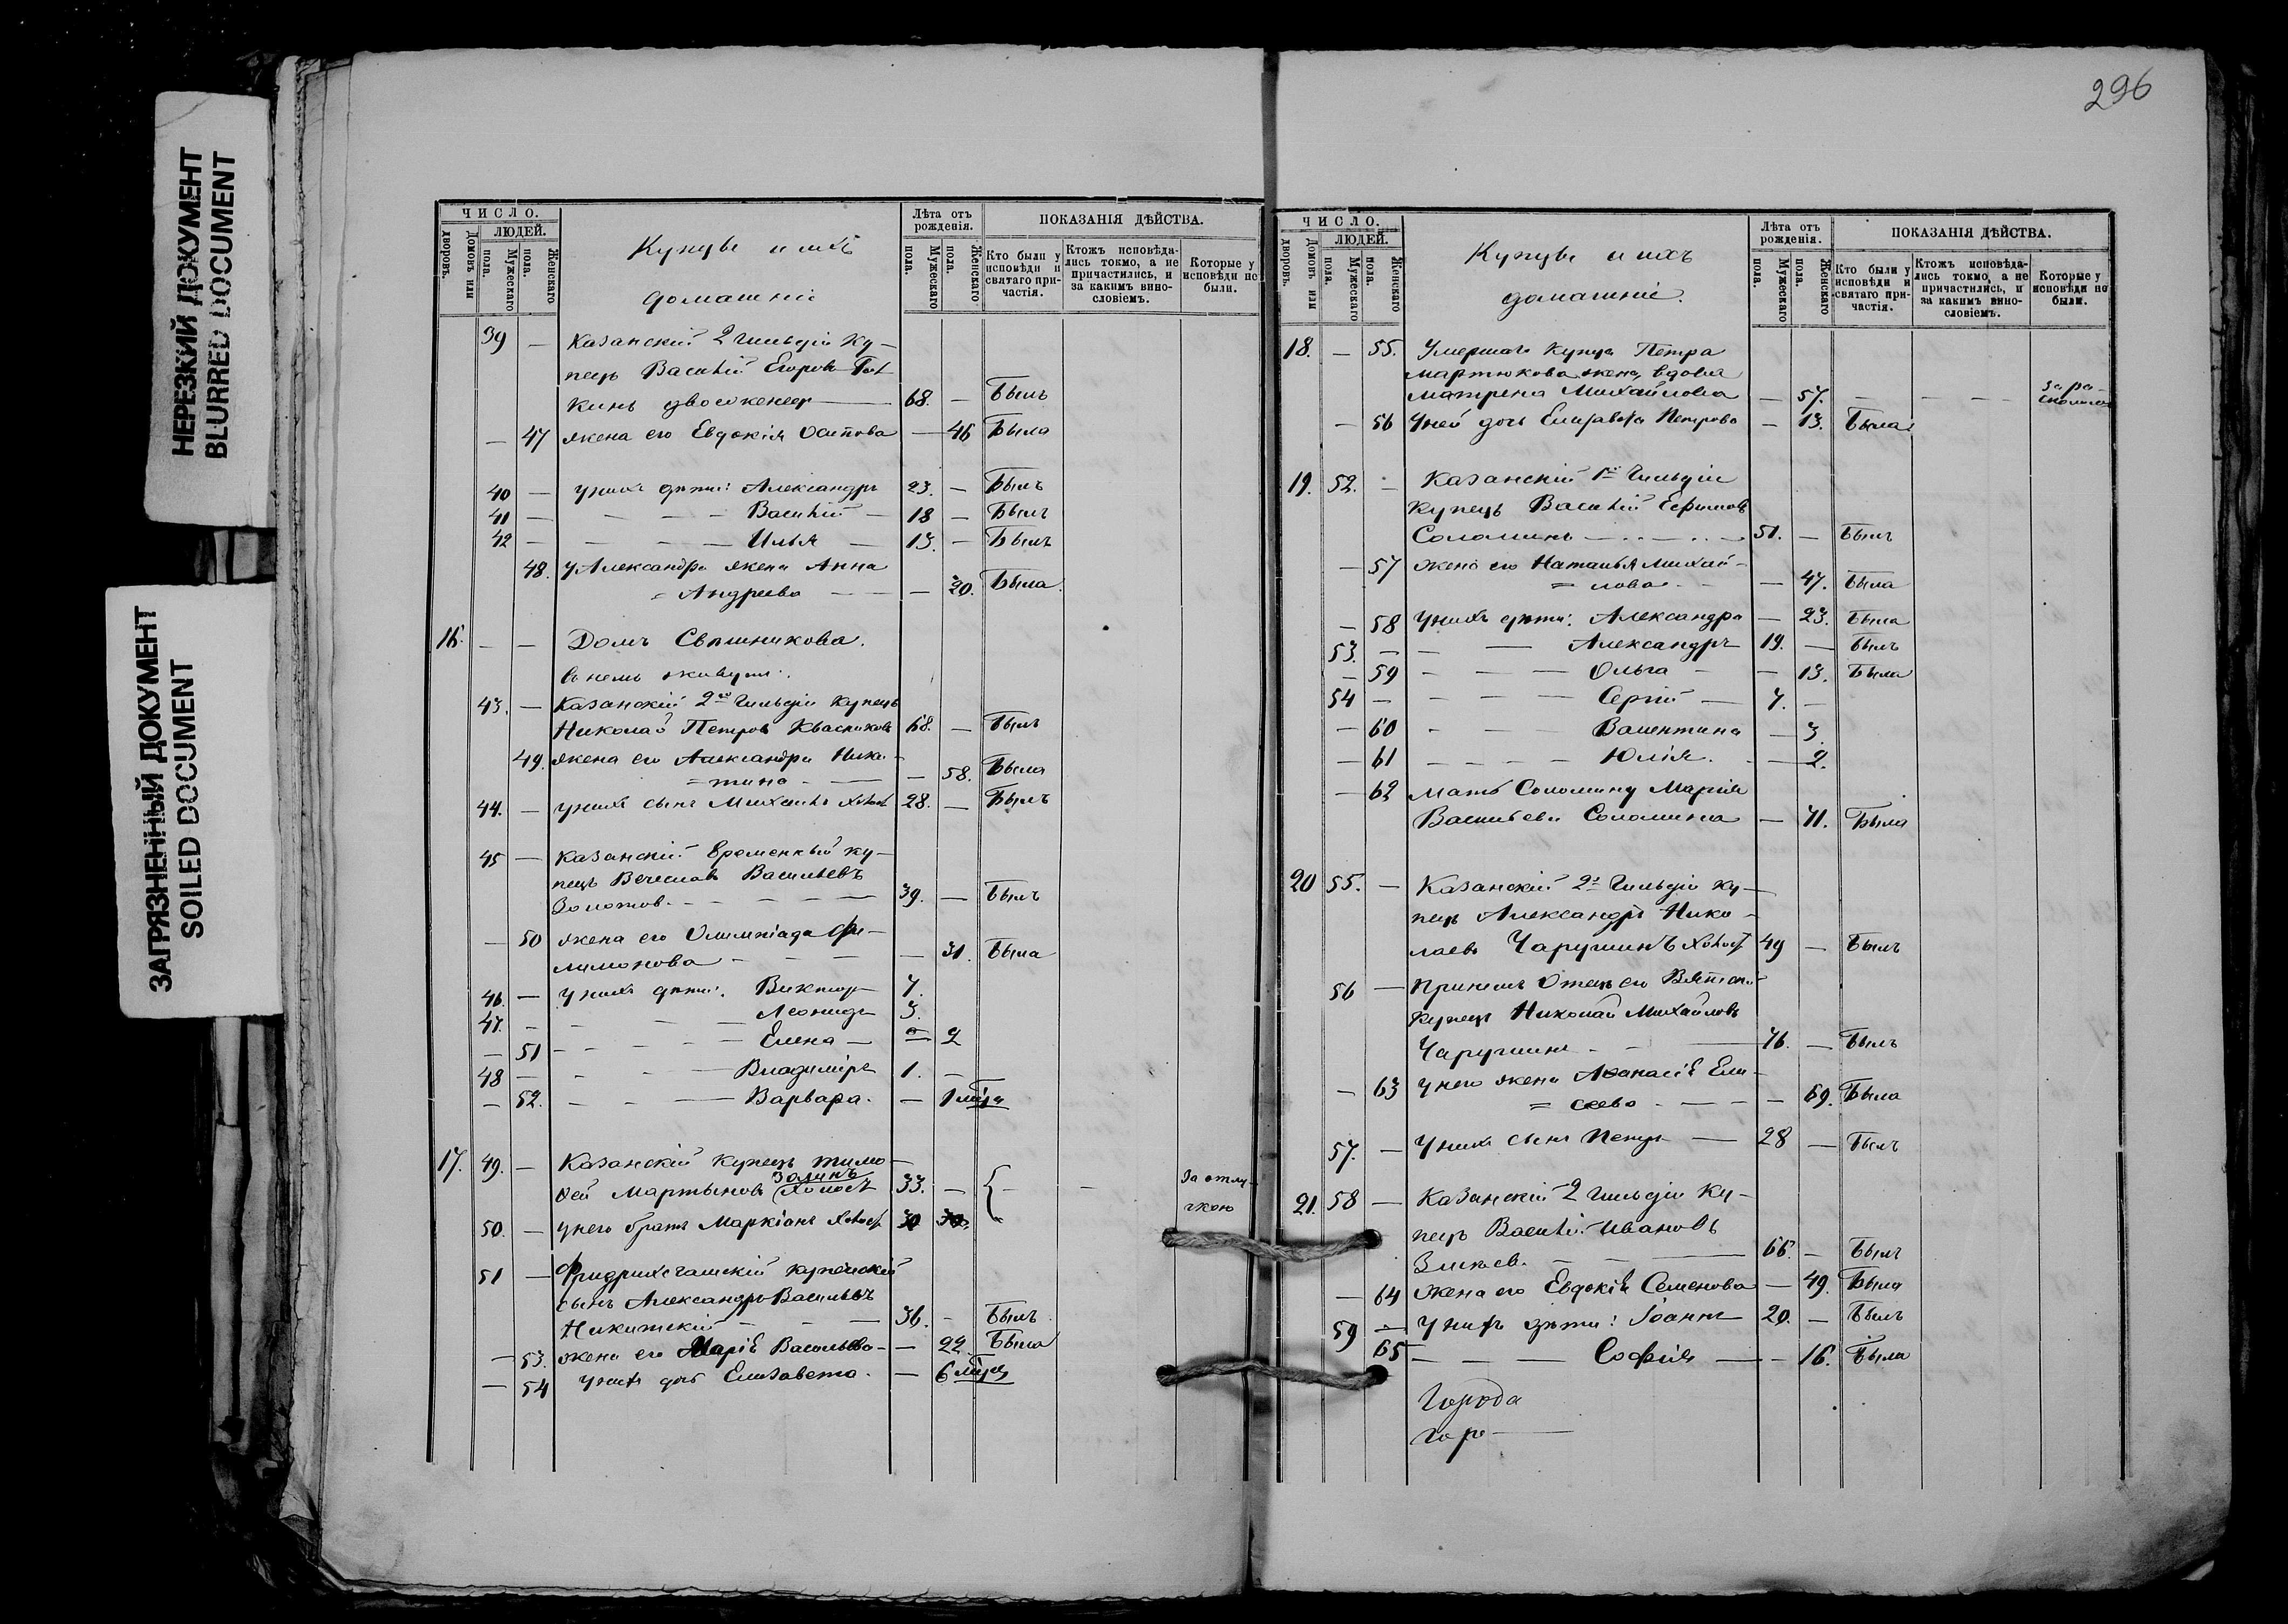 НЕРЕЗКИЙ ДОКУМЕНТ
BLURRED DOCUMENT
ЗАГРЯЗНЕННЫЙ ДОКУМЕНТ
SOILED DOCUMENT
ЧИСЛО.
ЛЮДЕЙ.
Домовъ или дворовъ.
Мужескаго пола.
Женскаго пола.
Купцы и ихъ
домашніе
Лѣта отъ рожденія.
Мужескаго пола.
Женскаго пола.
ПОКАЗАНІЯ ДѢЙСТВА.
Кто были у исповѣди и святаго причастія.
Ктожъ исповѣдались токмо, а не причастились, и за какимъ винословіемъ.
Которые у исповѣди не были.
39 — Казанскій 2 гильдіи ку-
пецъ Василій Егоровъ
кинъ двоеженецъ — 68. — Былъ
— 47 жена его Евдокія Осипова — 46 Была
40 — у нихъ дѣти: Александръ 23. — Былъ
41 — — — — Василій — 18 — Былъ
42 — — — — Илья — 13. — Былъ
48. У Александра жена Анна
= Андреева — — — 20. Была
16. — — Домъ Свѣшникова.
въ немъ живутъ:
43. — Казанскій 2ой гильдіи купецъ
Николай Петровъ Квасниковъ 68. — Былъ
49. жена его Александра Ники-
= тина — — 58. Была
44. — у нихъ сынъ Михаилъ холост 28. — Былъ
45 — Казанскій временный ку-
пецъ Вячеславъ Васильевъ
Золотов. — — — — 39. — Былъ
— 50 жена его Олимпіада Фи-
лимонова — — — — 31. Была
46. — у нихъ дѣти: Викторъ 7.
47. — — — — Леонидъ 3.
— 51 — — — — Елена — — 2
48 — — — — Владиміръ 1. —
— 52. — — — Варвара. — 1 мѣся
17. 49. — Казанскій купецъ Тимо-
ѳей Мартыновъ Золинъ (холостъ 33. — { — — За отлу-
чкою
50. — у него братъ Маркіанъ холост 30
51 — Фридрихсгамскій купеческій
сынъ Александръ Васильевъ
Никитскій — — — 36. — Былъ
— 53. жена его Марія Васильева — — 22. Была
— 54 у нихъ дочь Елизавета. — 6 мѣся
296
ЧИСЛО.
ЛЮДЕЙ.
Домовъ или дворовъ.
Мужескаго пола.
Женскаго пола.
Купцы и ихъ
домашніе.
Лѣта отъ рожденія.
Мужескаго пола.
Женскаго пола.
ПОКАЗАНІЯ ДѢЙСТВА.
Кто были у исповѣди и святаго причастія.
Ктожъ исповѣдались токмо, а не причастились, и за какимъ винословіемъ.
Которые у исповѣди не были.
18. — 55. Умершаго купца Петра
Мартюкова жена, вдова
Матрена Михайлова — 57. — — — — за ра-
— 56 У ней дочь Елизавета Петрова — 13. Была
19. 52. — Казанскій 1ой гильдіи
купецъ Василій Ефимовъ
Соломинъ — — — 51. — Былъ
— 57 жена его Наталья Михай-
= лова — — — 47. Была
— 58 У нихъ дѣти: Александра — 23. Была
53. — — — Александръ 19. — Былъ
— 59 — — — Ольга — — 13. Была
54 — — — — Сергій — 7. —
— 60 — — — Валентина — 3.
— 61 — — — — Юлія. — — 2.
— 62 Мать Соломину Марія
Васильева Соломина — 71. Была
20 55. — Казанскій 2ой гильдіи ку-
пецъ Александръ Нико-
лаевъ Чарушинъ холост 49 — Былъ
56 — При немъ отецъ его Вятскій
купецъ Николай Михайловъ
Чарушинъ — — — 76. — Былъ
— 63 У него жена Аѳанасія Ели-
= сеева — — — — 69. Была
57. — У нихъ сынъ Петръ — 28 — Былъ
21. 58 — Казанскій 2 гильдіи ку-
пецъ Василій Ивановъ
— — — 66. — Былъ
— 64 жена его Евдокія Семенова — 49. Была
59 — У нихъ дѣти: Іоаннъ 20. — Былъ
65 — — — Софія — — 16. Была
Города